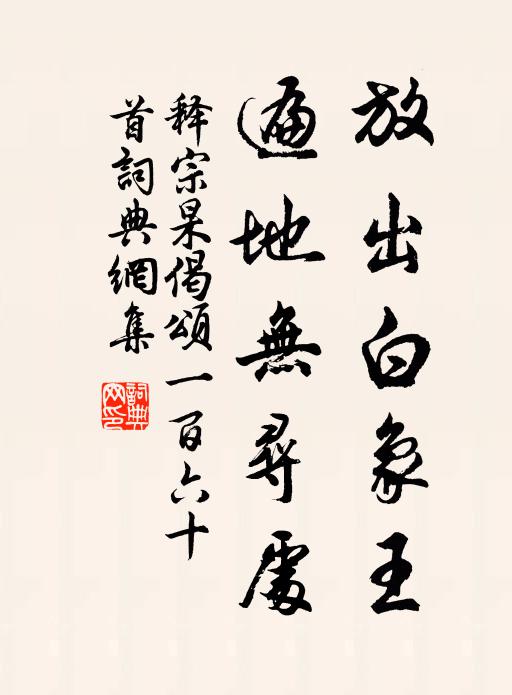 放出白象王
遍地無尋處
释宗杲偈頌一百六十
首詞典網集
詞典
网印